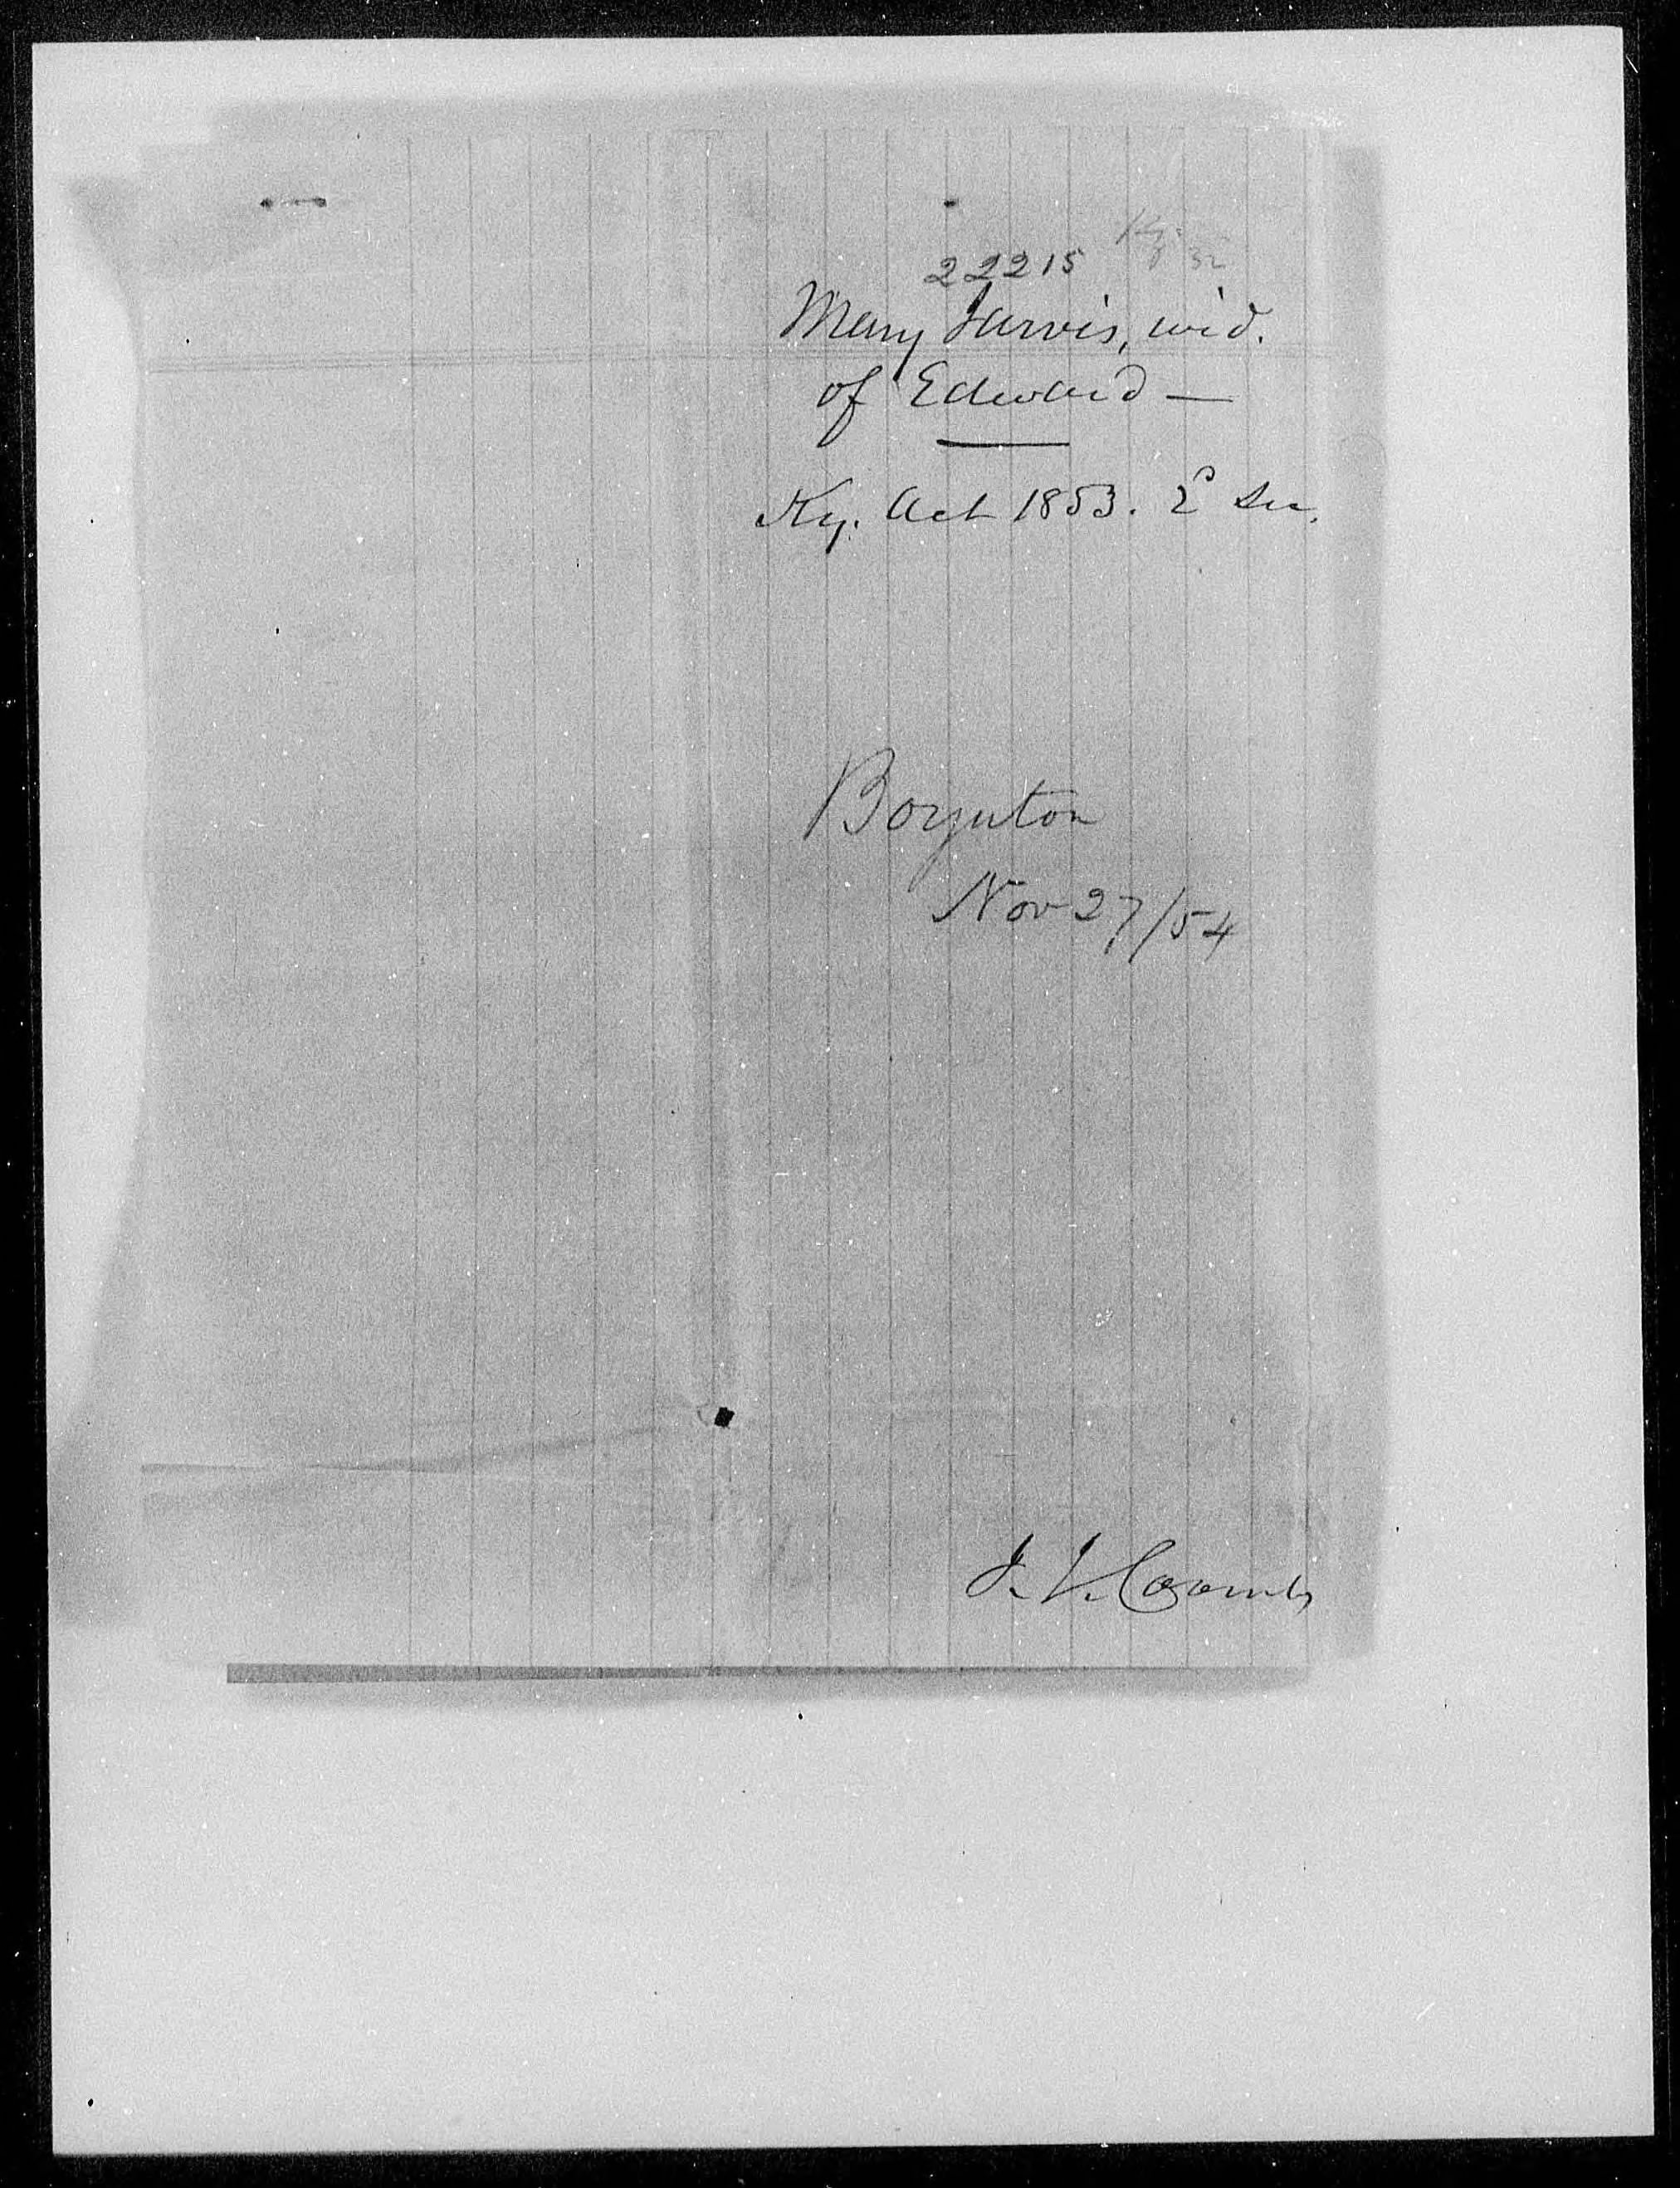 22215
Mary Jarvis, wid.
of Edward —
Ky. Act 1853. 2d Sec.
Boynton
Nov 27/54
J. V. Coombs